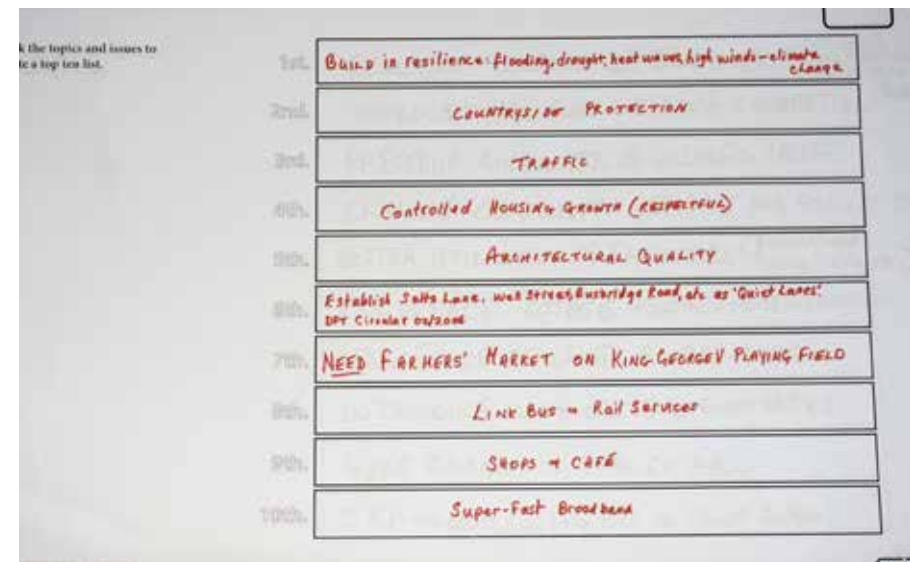 k the topics and issues to
te a top ten list.
1st. Build in resilience: flooding, drought, heat waves, high winds – climate
change
2nd. COUNTRYSIDE PROTECTION
3rd. TRAFFIC
4th. Controlled HOUSING GROWTH (RESPECTFUL)
5th. ARCHITECTURAL QUALITY
6th. Establish Salts Lane, West Street, Busbridge Road, etc as 'Quiet Lanes'.
DFT Circular 02/2006
7th. NEED FARMERS' MARKET ON KING GEORGE V PLAYING FIELD
8th. LINK BUS + Rail Services
9th. SHOPS + CAFÉ
10th. Super-Fast Broadband